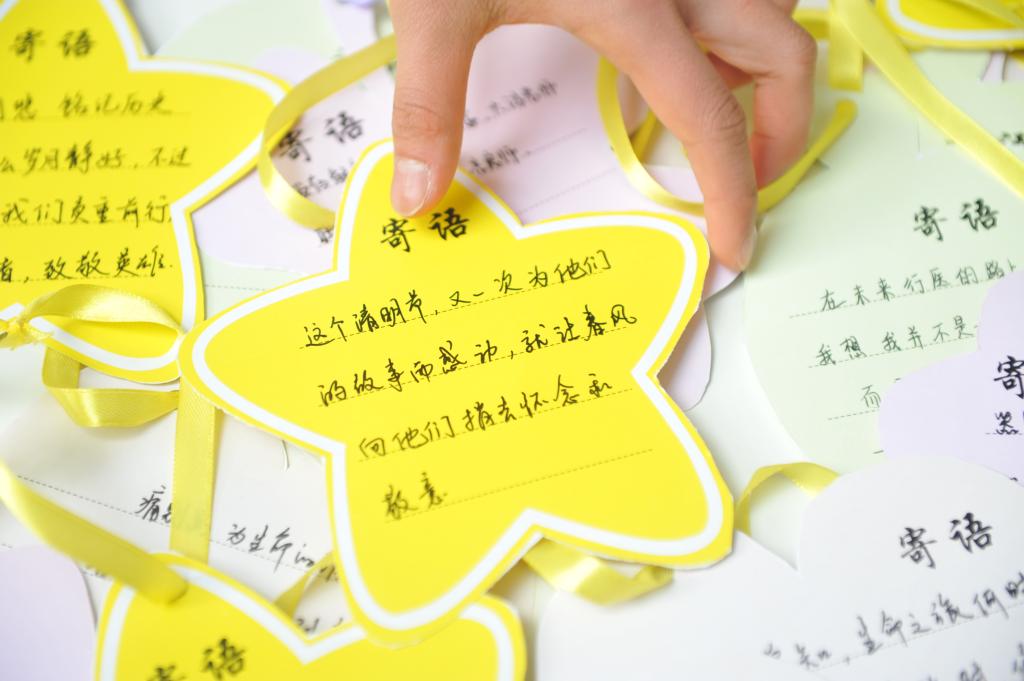 寄语
铭记历史
么岁月静好,不过
我们负重前行,
者,致敬英雄.
寄语
寄语
这个清明节,又一次为他们
的故事而感动,就让春风
向他们捎去怀念和
敬意
寄语
在未来行医的路
我想 我并不是
而
寄
为生命的
寄语
寄语
生命之旅何时